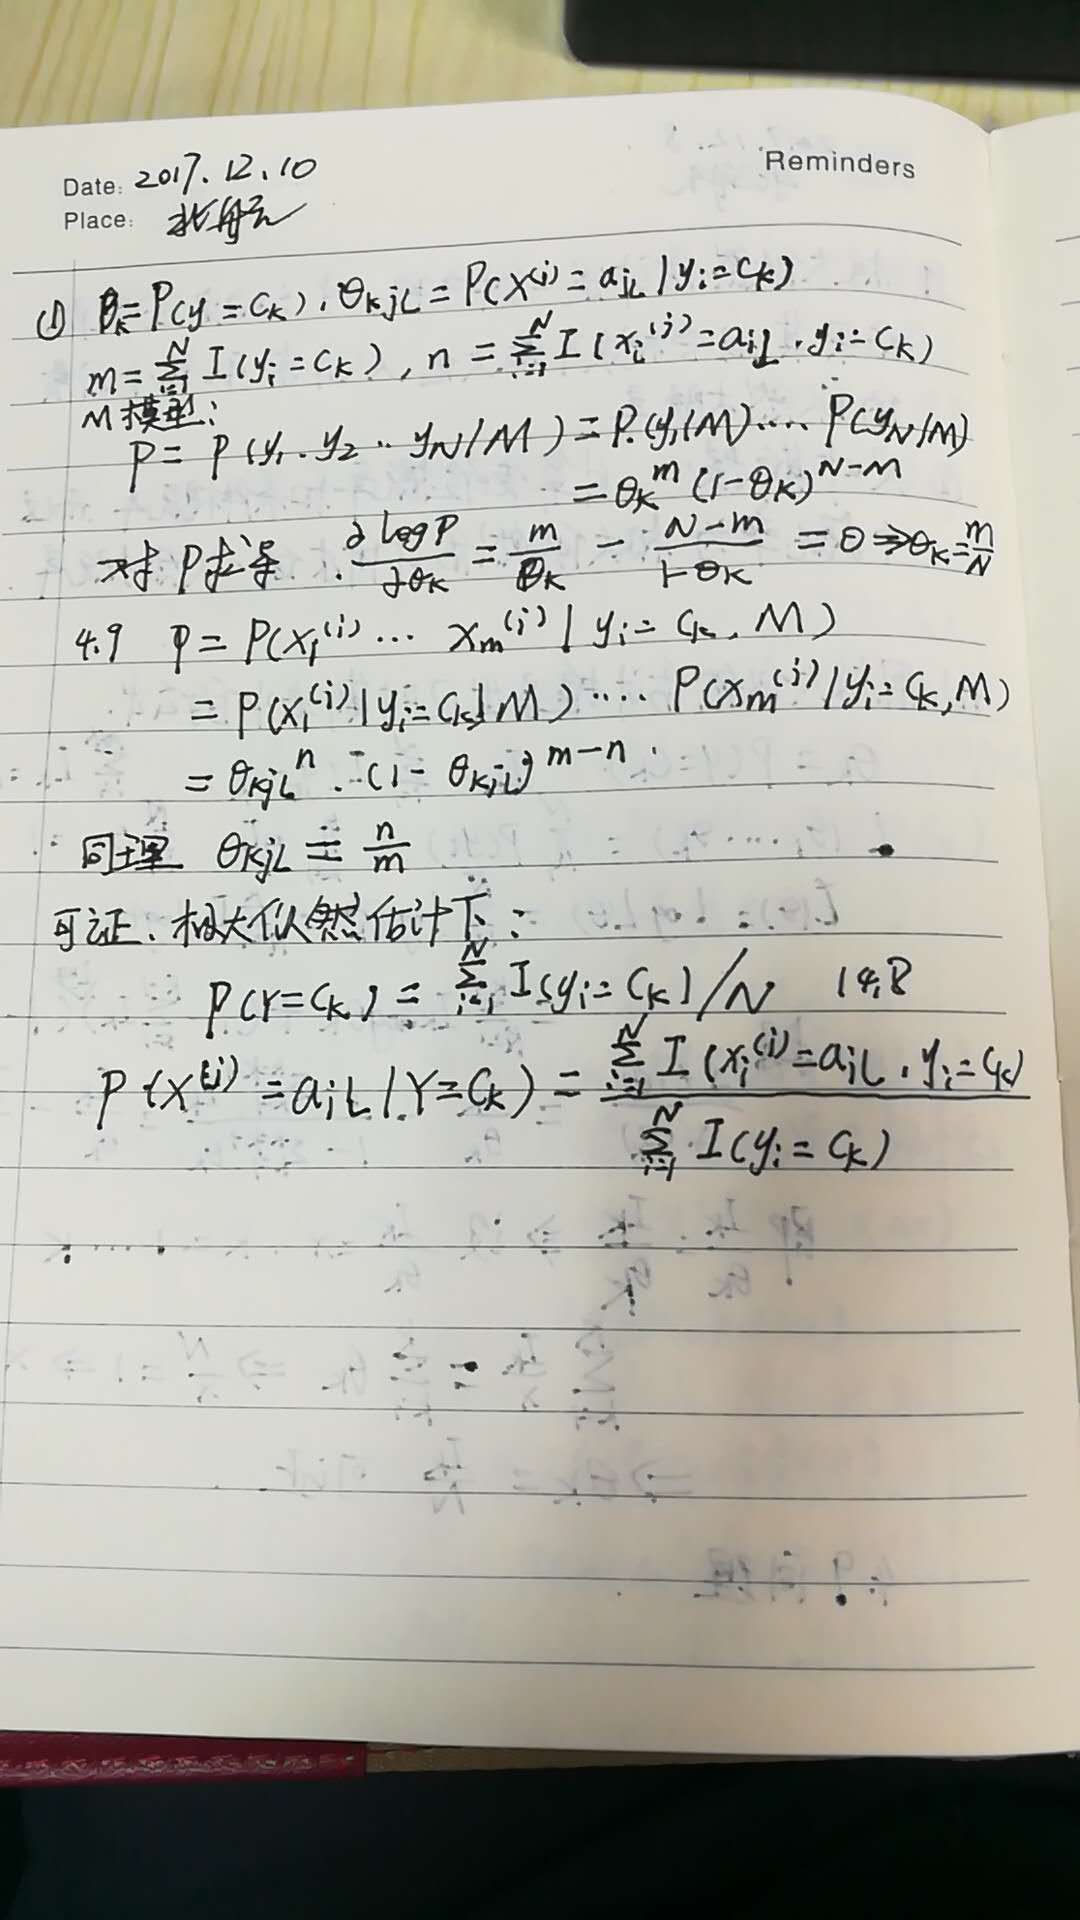 Reminders
Date: 2017.12.10
Place:
(1) θk=P(y=Ck), θkjL=P(X^(j)=ajL|yi=Ck)
m=∑_{i=1}^{N} I(yi=Ck), n=∑_{i=1}^{N} I(xi^(j)=ajL, yi=Ck)
M模型:
P=P(y1.y2..yN/M)=P.(y1/M)....P(yN/M)
=θk^m(1-θk)^{N-M}
对P求导. ∂logP/∂θk=m/θk-(N-m)/(1-θk)=0⇒θk=m/N
4.9 P=P(x1^(j)... xm^(j)|yi=Ck, M)
=P(x1^(j)|yi=Ck,M)....P(xm^(j)|yi=Ck,M)
=θkjL^n.(1-θkjL)^{m-n}.
同理 θkjL=n/m
可证、极大似然估计下:
P(Y=Ck)=∑_{i=1}^{N} I(yi=Ck)/N 14.8
P(X^(j)=ajL|Y=Ck)=∑_{i=1}^{N} I(xi^(j)=ajL, yi=Ck)
∑_{i=1}^{N} I(yi=Ck)